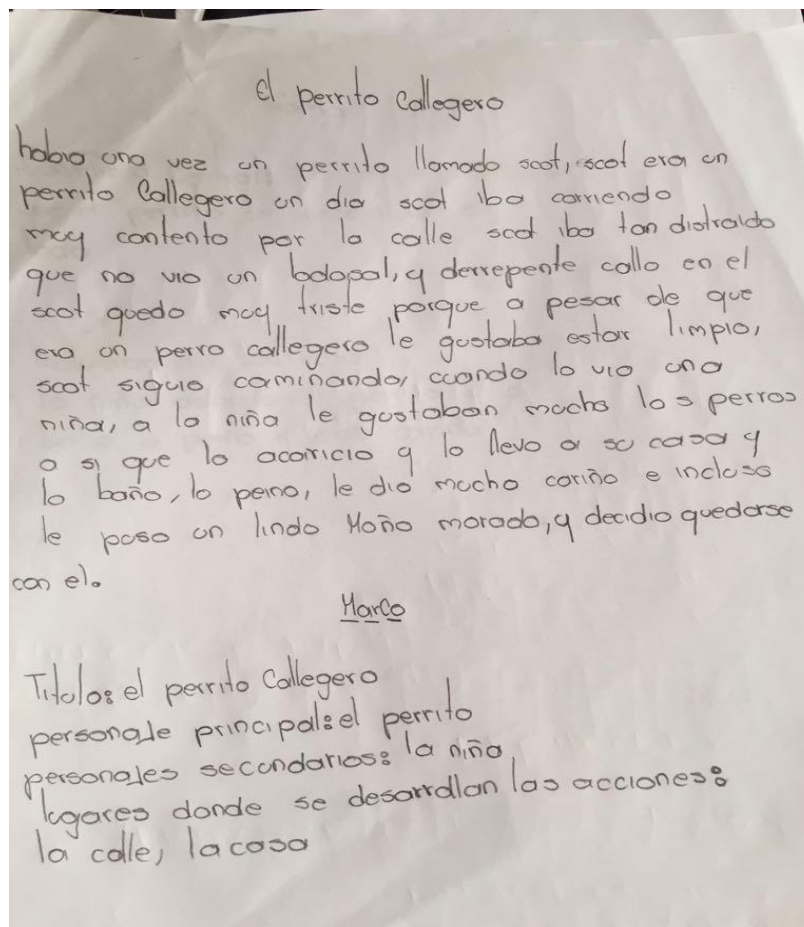 El perrito Callegero
habia una vez un perrito llamado scot, scot era un
perrito Callegero un dia scot iba corriendo
muy contento por la calle scot iba tan distraido
que no vio un lodopal, y derrepente callo en el
scot quedo muy triste porque a pesar de que
era un perro callegero le gustaba estar limpio,
scot siguio caminando, cuando lo vio una
niña, a la niña le gustaban mucho los perros
a si que lo acorricio y lo llevo a su casa y
lo baño, lo peino, le dio mucho cariño e incluso
le puso un lindo Moño morado, y decidio quedarse
con el.
Marco
Titulo: el perrito Callegero
personaje principal: el perrito
personajes secundarios: la niña
lugares donde se desarrollan las acciones:
la calle, la casa